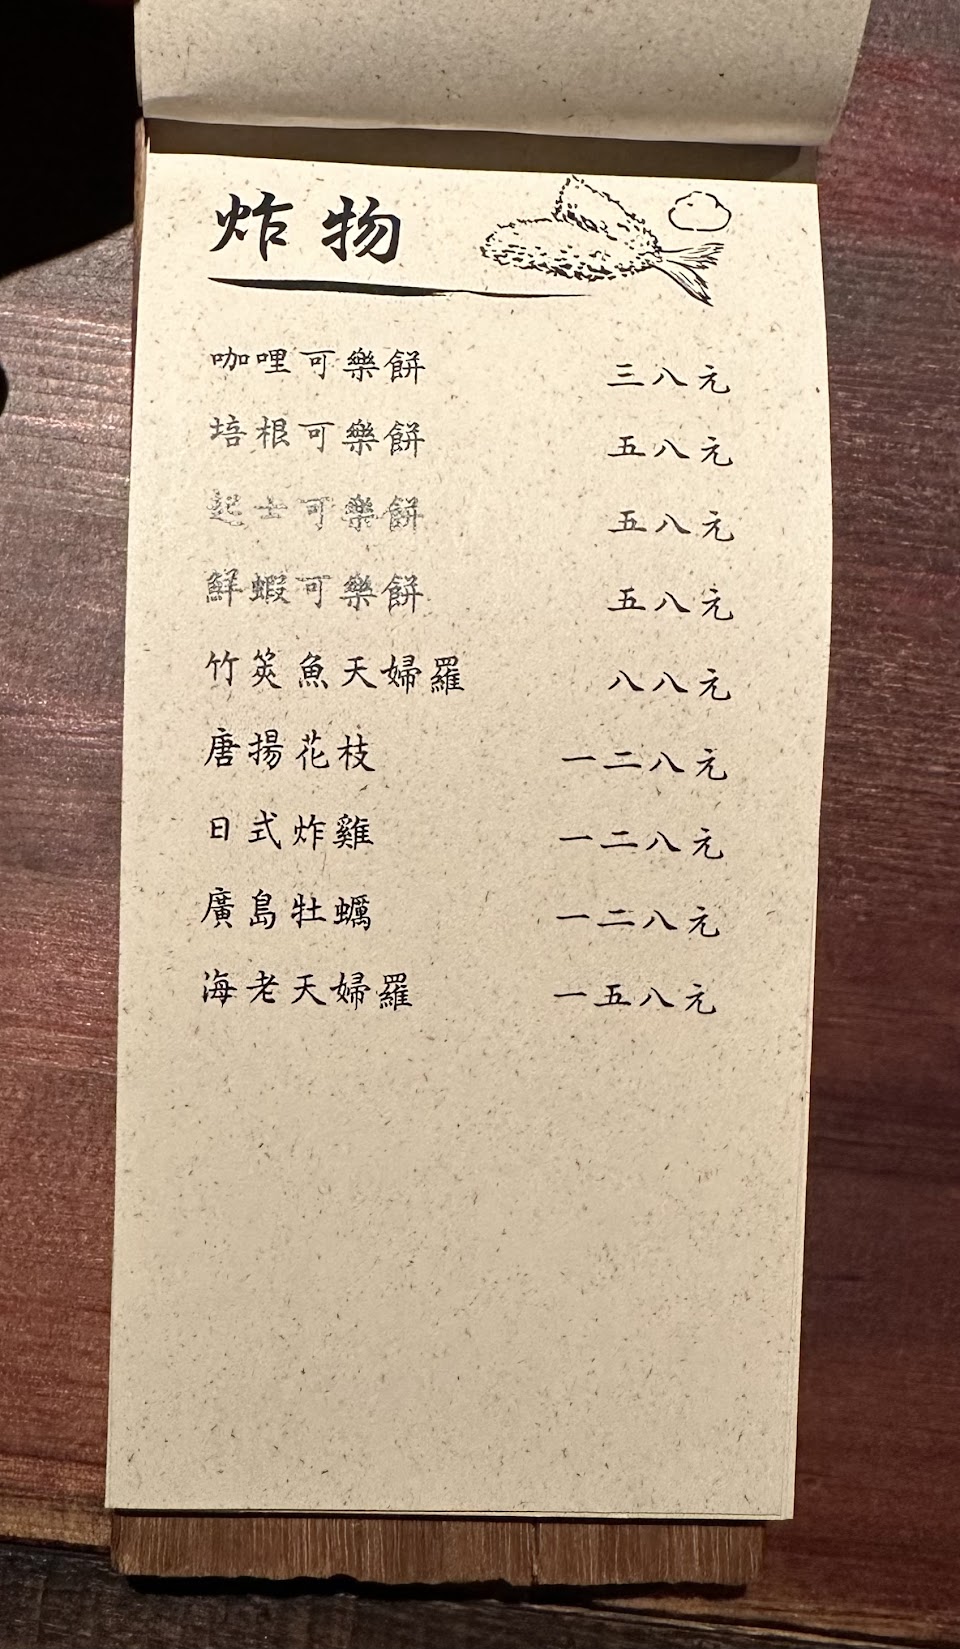 炸物
咖哩可樂餅 三八元
培根可樂餅 五八元
起士可樂餅 五八元
鮮蝦可樂餅 五八元
竹筴魚天婦羅 八八元
唐揚花枝 一二八元
日式炸雞 一二八元
廣島牡蠣 一二八元
海老天婦羅 一五八元